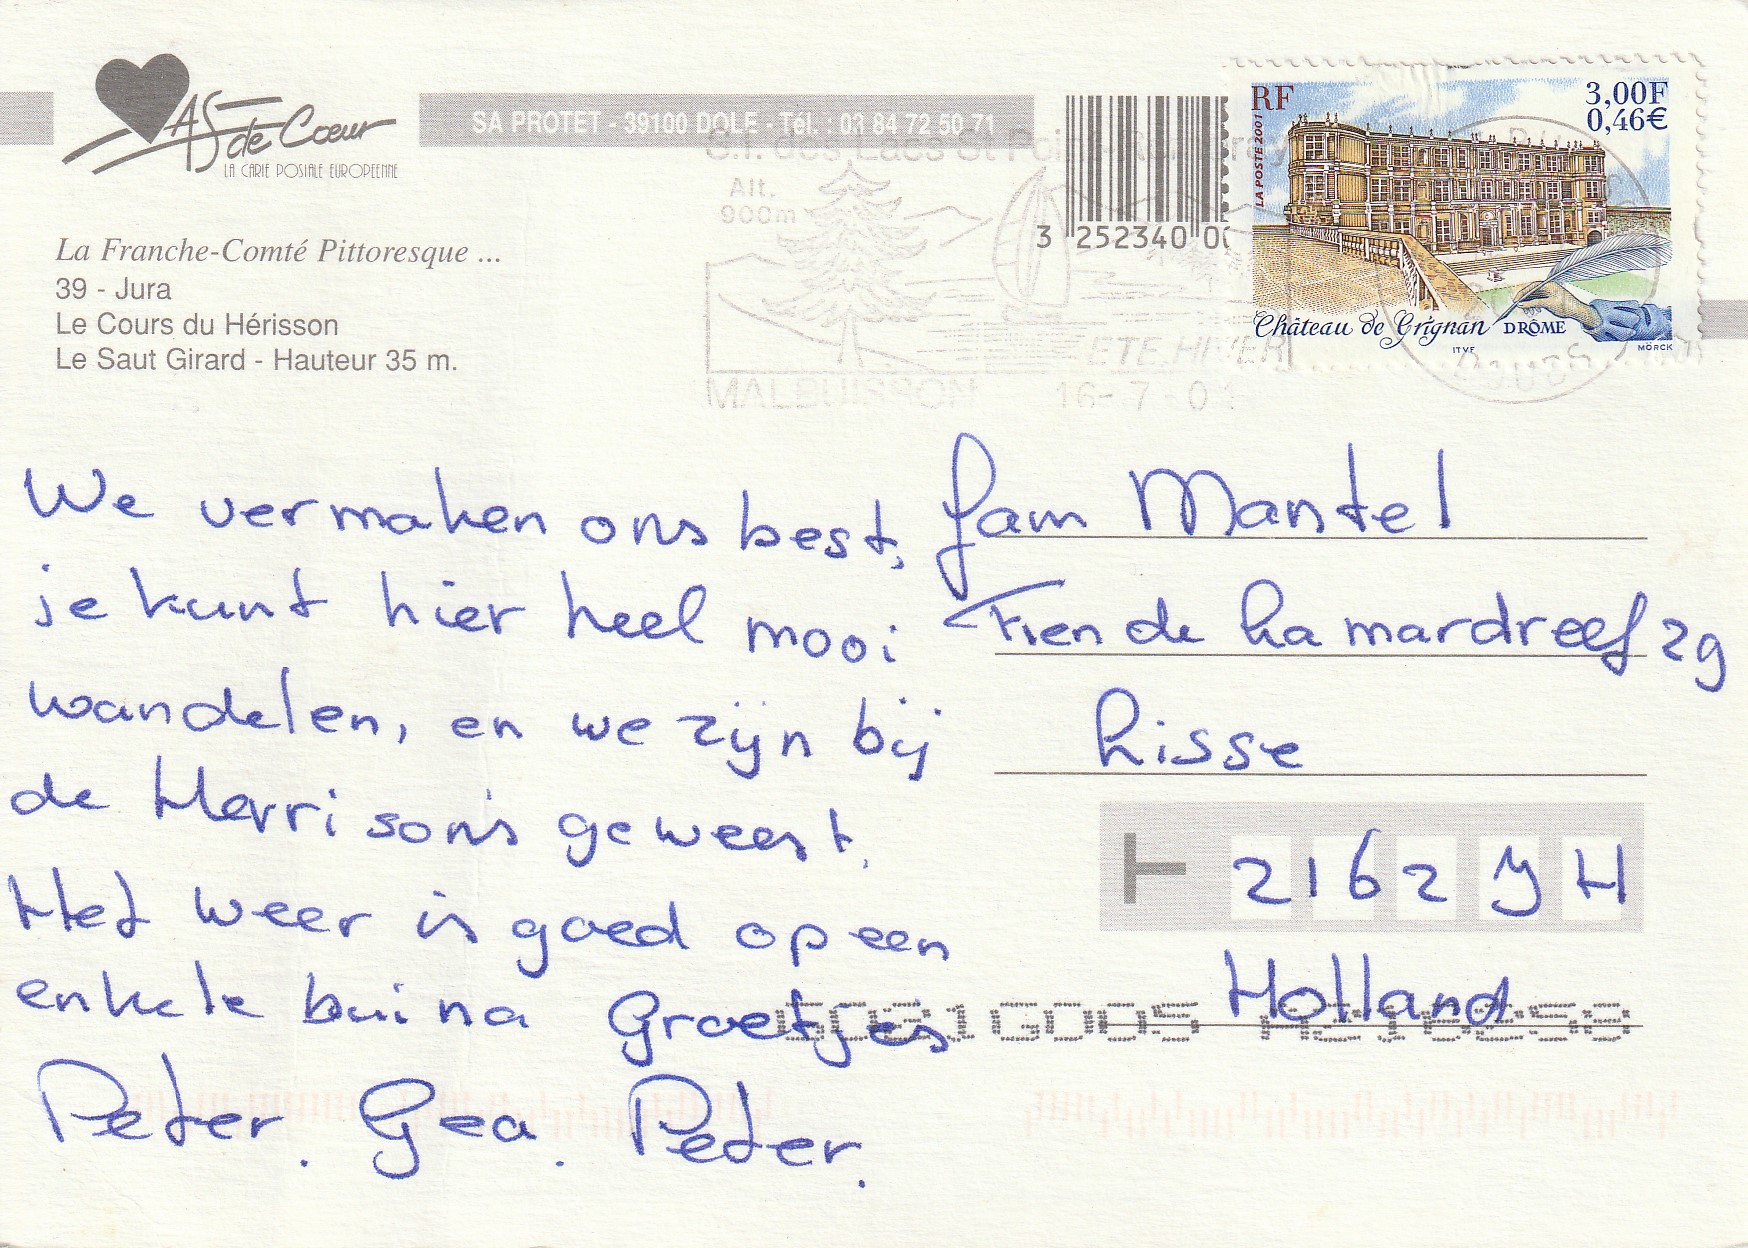 AS de Cœur
LA CARTE POSTALE EUROPEENNE
SA PROTET - 39100 DOLE - Tél. : 03 84 72 50 71
La Franche-Comté Pittoresque ...
39 - Jura
Le Cours du Hérisson
Le Saut Girard - Hauteur 35 m.
S.I. des Lacs St Point-
Alt.
900m
ETE.HIVER
MALBUISSON 16-7-01
3 252340 00
RF
3,00F
0,46€
LA POSTE 2001
Château de Grignan DRÔME
ITVF
MÖRCK
DOUBS
We vermaken ons best,
je kunt hier heel mooi
wandelen, en we zijn bij
de Herrison's geweest.
Het weer is goed op een
enkele bui na Groetjes
Peter. Gea. Peter.
fam Mantel
Fien de la mardreef 29
Lisse
T 2162 YH
Holland